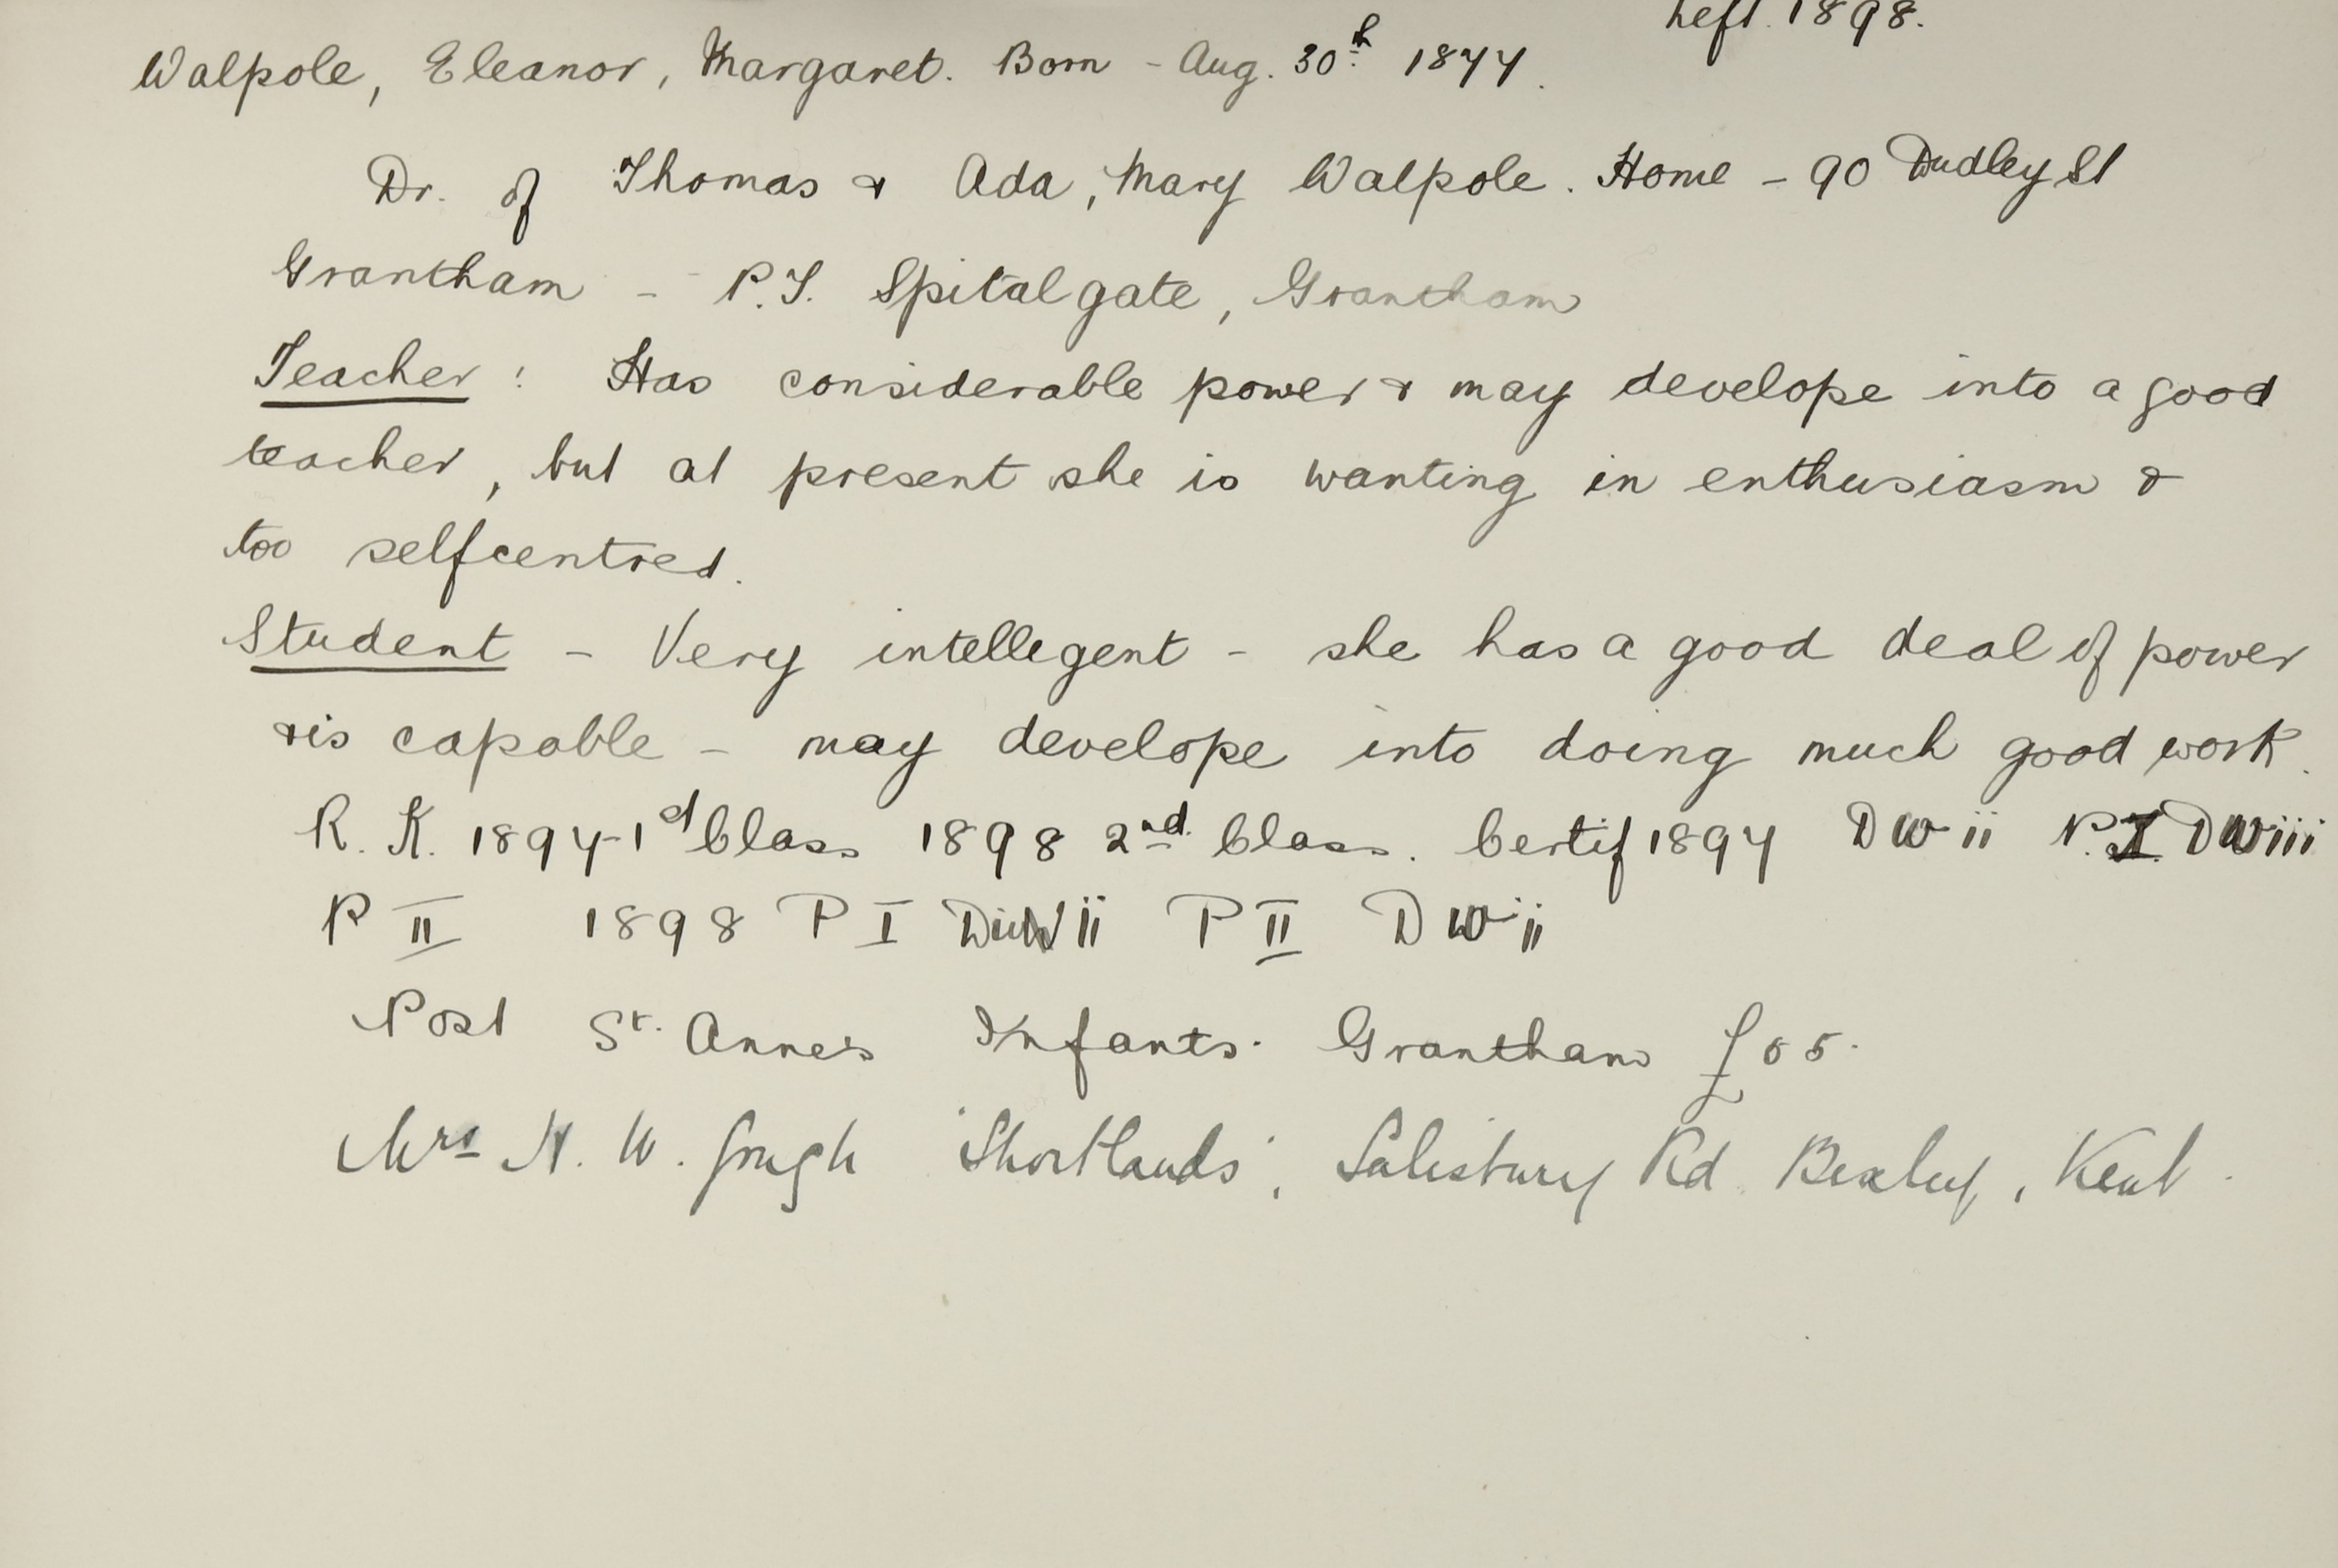 Left. 1898.
Walpole, Eleanor, Margaret. Born - Aug. 30th 1877.
Dr. of Thomas & Ada, Mary Walpole. Home - 90 Dudley St
Grantham - P.T. Spitalgate, Grantham
Teacher: Has considerable power & may develope into a good
teacher, but at present she is wanting in enthusiasm &
too selfcentred.
Student - Very intellegent - she has a good deal of power
& is capable - may develope into doing much good work.
R. K. 1897 1st Class 1898 2nd Class. Certif 1897 Div ii P.I Div iii
P II 1898 P I Div ii P II Div ii
Post St. Anne's Infants. Grantham £55.
Mrs N. W. Gough 'Shortlands', Salisbury Rd Bexley, Kent.